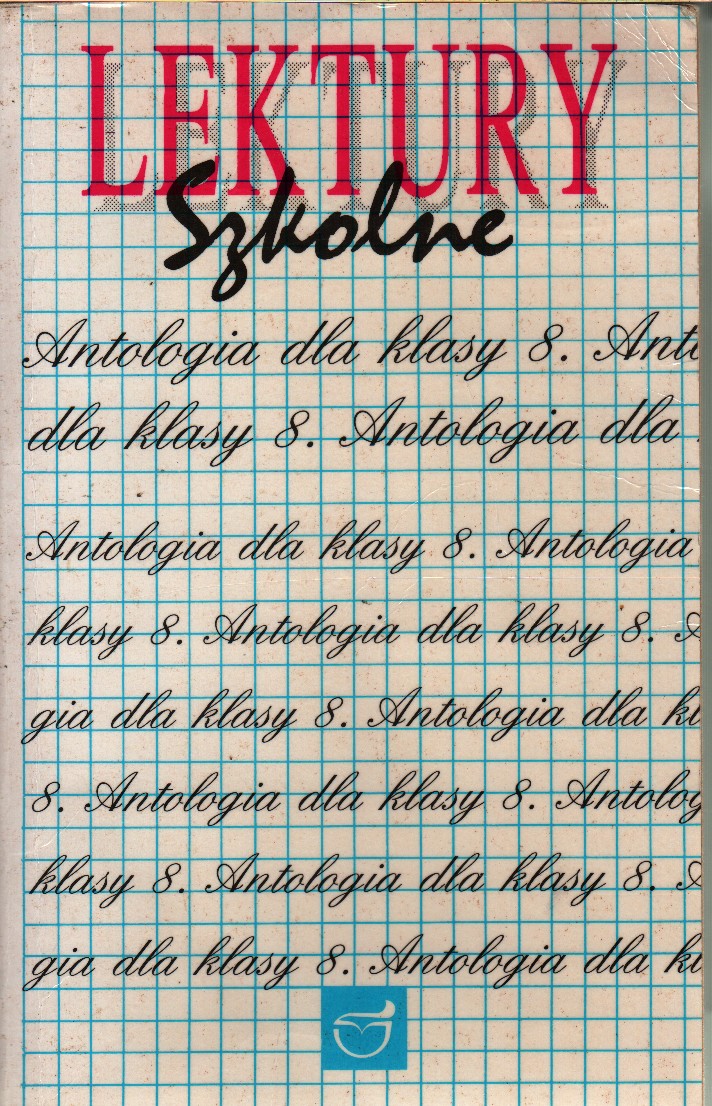 LEKTURY
Szkolne
Antologia dla klasy 8. Anto
dla klasy 8. Antologia dla
Antologia dla klasy 8. Antologia
klasy 8. Antologia dla klasy 8. A
gia dla klasy 8. Antologia dla kl
8. Antologia dla klasy 8. Antolog
klasy 8. Antologia dla klasy 8. A
gia dla klasy 8. Antologia dla kl